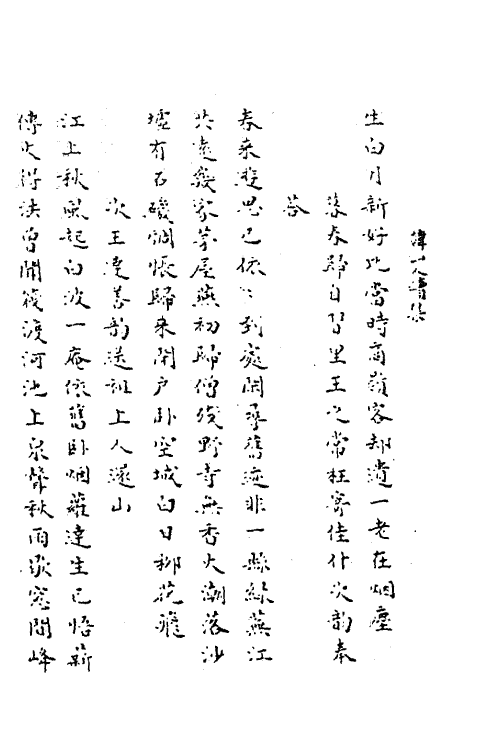 生白月新好比當時商嶺客却遺一老在烟塵
暮春歸自習里王之常枉寄佳什次韵奉
答
春来遊思已依〻到處閑尋舊迹非一縣綠蕪江
共遠幾家茅屋燕初歸僧殘野寺無香火潮落沙
墟有石磯惆悵歸来閑户卧空城白日柳花飛
次王達善韵送祖上人還山
江上秋風起白波一庵依舊卧烟蘿達生已悟薪
傳火得法曾聞筏渡河池上泉聲秋雨歇窓間峰